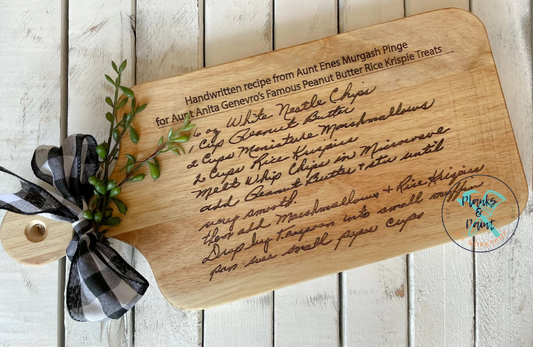 Handwritten recipe from Aunt Enes Murgash Pinge
for Aunt Anita Genevro's Famous Peanut Butter Rice Krispie Treats
6 oz White Nestle Chips
1 Cup Peanut Butter
2 Cups Miniature Marshmallows
2 Cups Rice Krispies
Melt Whip Chips in Microwave
add Peanut Butter & stir until
very smooth.
then add Marshmallows & Rice Krispies
Drop by teaspoon into small muffin
pan use small paper cups
Planks
&
Paint